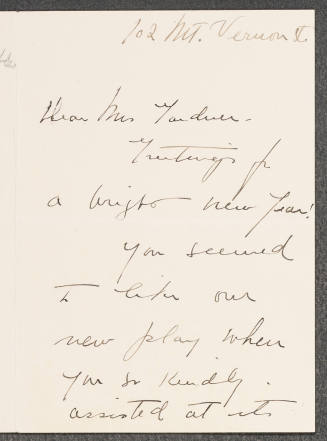 102 Mt. Vernon St
Dear Mrs Gardner -
Greetings for
a bright new Year!
You seemed
to like our
new play when
you so kindly
assisted at its